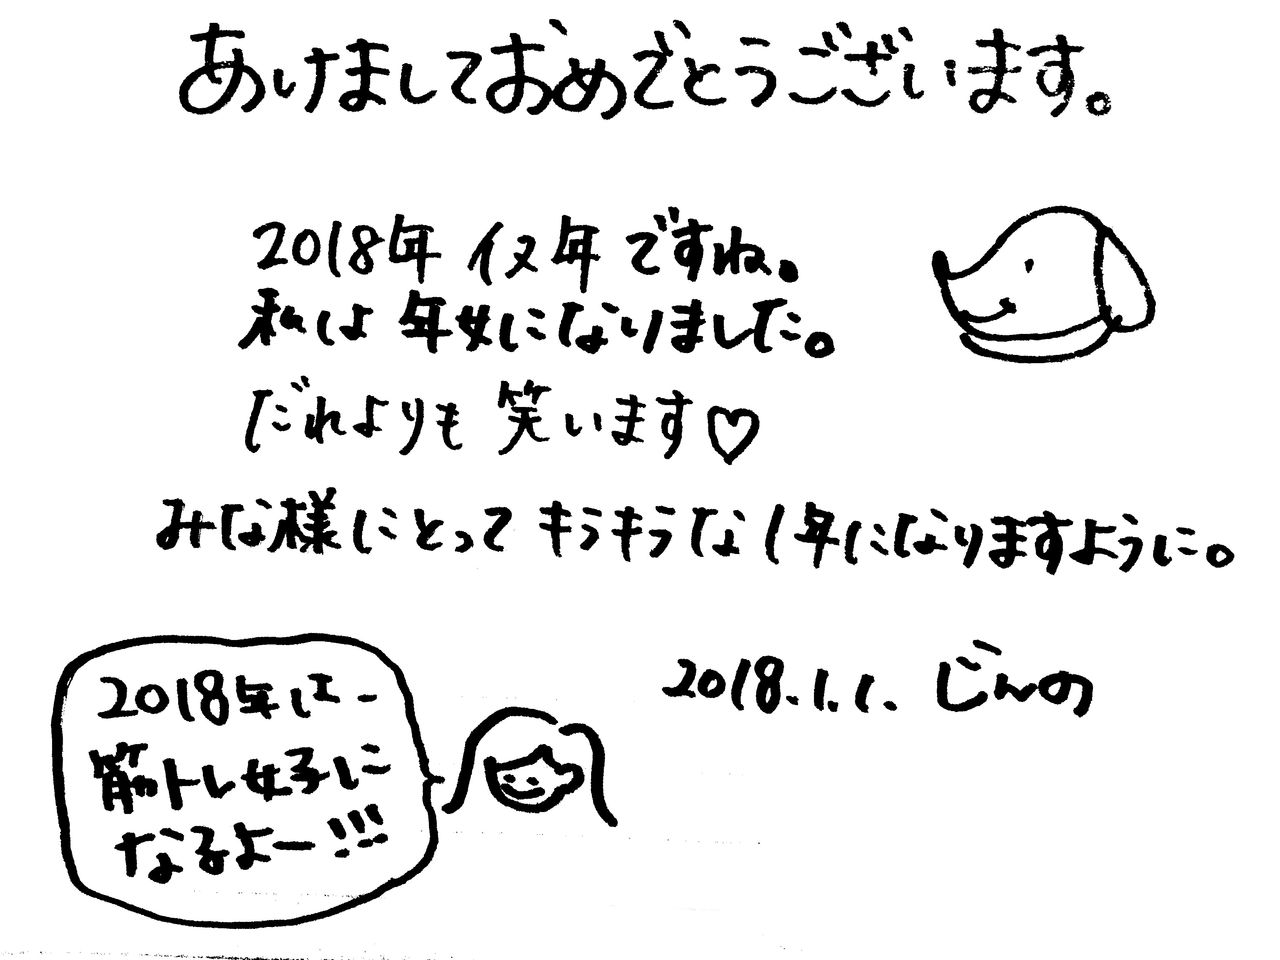 あけましておめでとうございます。
2018年 イヌ年 ですね。
私は 年女になりました。
だれよりも 笑います♡
みな様にとって キラキラな 1年になりますように。
2018.1.1. じんの
2018年はー
筋トレ女子に
なるよー!!!